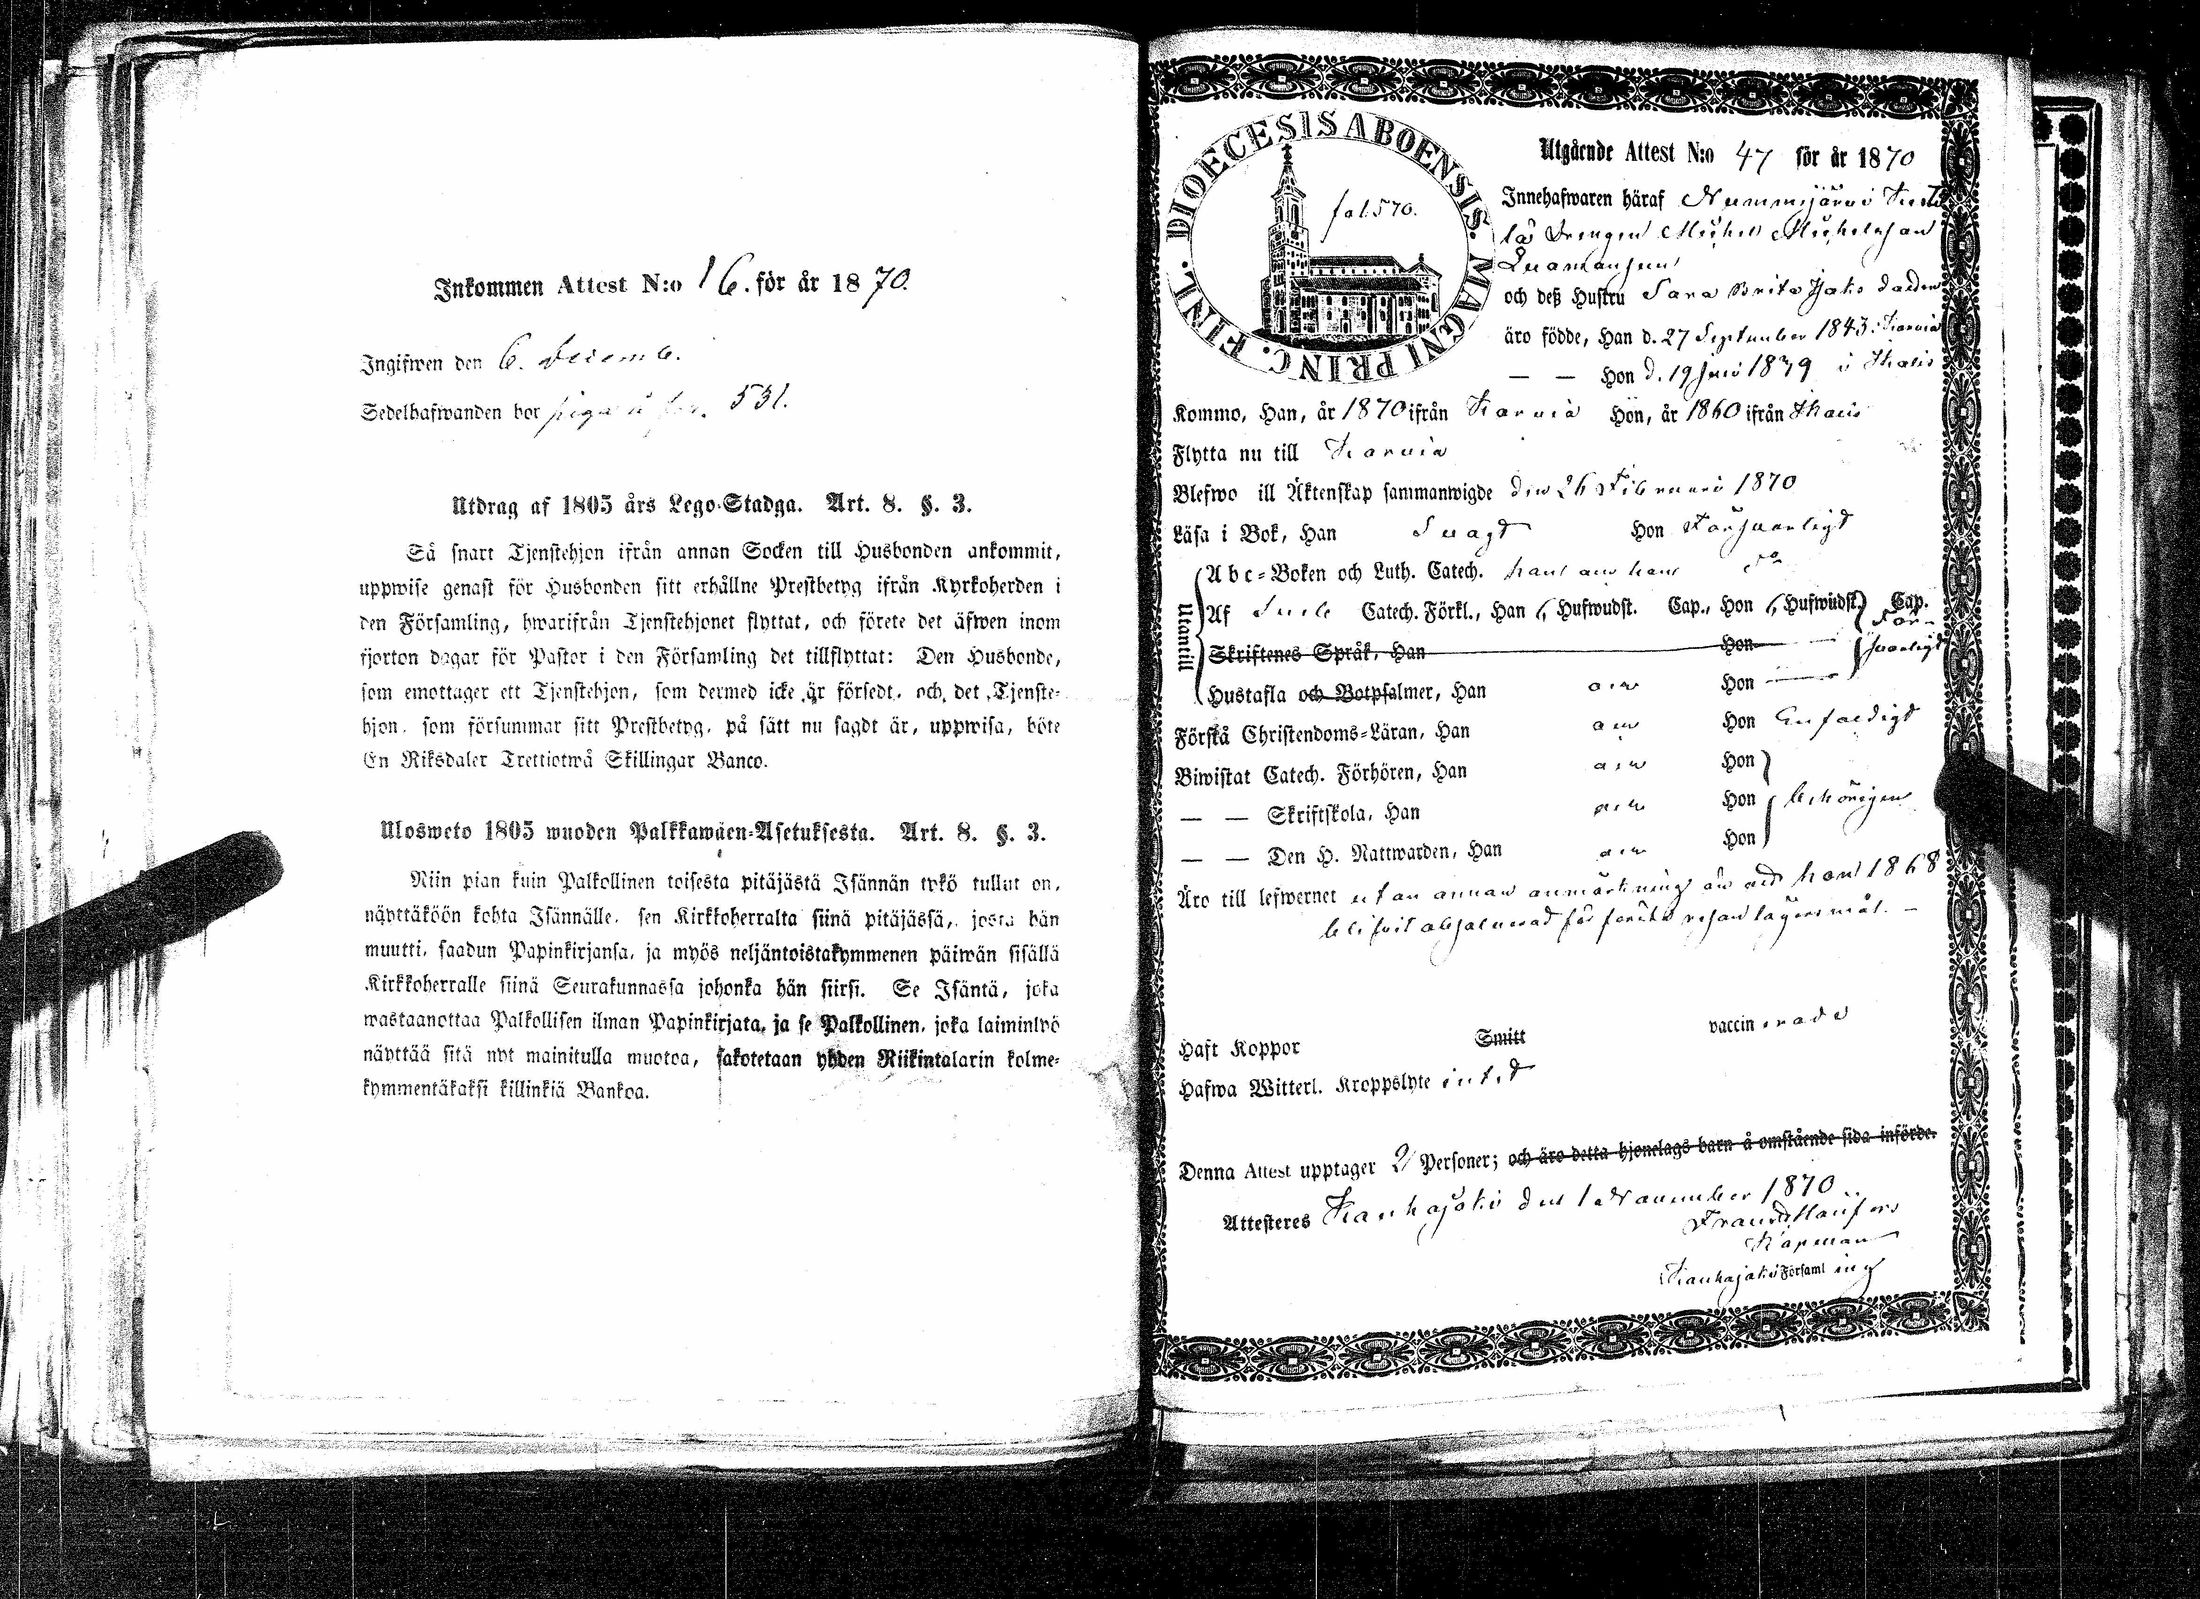 Inkommen Attest N:o 16. för år 1870.
Ingifwen den 6. Decemb.
Sedelhafwanden bor 531.
Utdrag af 1805 års Lego-Stadga. Art. 8. §. 3.
Så snart Tjenstehjon ifrån annan Socken till Husbonden ankommit,
uppwise genast för Husbonden sitt erhållne Prestbetyg ifrån Kyrkoherden i
den Församling, hwarifrån Tjenstehjonet flyttat, och förete det äfwen inom
fjorton dagar för Pastor i den Församling det tillflyttat: Den Husbonde,
som emottager ett Tjenstehjon, som dermed icke är försedt, och det Tjenste-
hjon, som försummar sitt Prestbetyg, på sätt nu sagdt är, uppwisa, böte
En Riksdaler Trettiotwå Skillingar Banco.
Ulosweto 1805 wuoden Palkkawäen-Asetuksesta. Art. 8. §. 3.
Niin pian kuin Palkollinen toisesta pitäjästä Isännän tykö tullut on,
näyttäköön kohta Isännälle, sen Kirkkoherralta siinä pitäjässä, josta hän
muutti, saadun Papinkirjansa, ja myös neljäntoistakymmenen päiwän sisällä
Kirkkoherralle siinä Seurakunnassa johonka hän siirsi. Se Isäntä, joka
wastaanottaa Palkollisen ilman Papinkirjata, ja se Palkollinen, joka laiminlyö
näyttää sitä nyt mainitulla muotoa, sakotetaan yhden Riikintalarin kolme-
kymmentäkaksi killinkiä Bankoa.
DIOECESIS ABOENSIS. MAGNI PRINC. FINL.
fol. 570.
Utgående Attest N:o 47 för år 1870
Innehafwaren häraf Nummijärvi
Drengen Michel Michelsson
och deß Hustru Sara Brita Jakobsdotter
äro födde, Han d. 27 September 1843 i Karvia
— — Hon d. 19 Juni 1839 i Ikalis
Kommo, Han, år 1870 ifrån Karvia Hon, år 1860 ifrån Ikalis
Flytta nu till Karvia
Blefwo till Äktenskap sammanwigde den 26 Februari 1870
Läsa i Bok, Han Svagt Hon Försvarligt
Utantill
Abc-Boken och Luth. Catech. Han Hon do
Af Catech. Förkl., Han 6 Hufwudst. Cap., Hon 6 Hufwudst. Cap. För-
Skriftenes Språk, Han Hon svarligt
Hustafla och Botpsalmer, Han Hon
Förstå Christendoms-Läran, Han Hon Enfaldigt
Biwistat Catech. Förhören, Han Hon
— — Skriftskola, Han Hon behörigen
— — Den H. Nattwarden, Han Hon
Äro till lefwernet utan annan anmärkning än att hon 1868
blifvit absolverad för första resan lägersmål. —
Haft Koppor Smitt vaccinerade
Hafwa Witterl. Kroppslyte intet
Denna Attest upptager 2 Personer; och äro detta hjonelags barn å omstående sida införde.
Attesteres Kauhajoki den 1 November 1870
Kapellan
Kauhajoki Församling